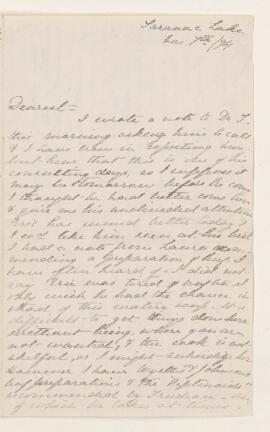 Saranac Lake
Nov 7th/94
Dearest =
I wrote a note to Dr T-
this morning asking him to call
& I have been in expecting him
but hear that this is one of his
consulting days, so I suppose it
may be tomorrow before he comes
I thought he had better come him
& give me his undivided attention
Eric had usual better
I not like him
I had a note from Laura
mending a preparation of beef I
have often heard of - I did not
say Eric was tired of
only wish he had the chance in
stead of this It is
difficult to get things done here
without being where you are
not wanted, & the cook is not
skilful, as I might
However I have Wyeth's & Johnson's
beef preparations & the "Peptonoids"
recommended by Trudeau - all
of which he takes at times -